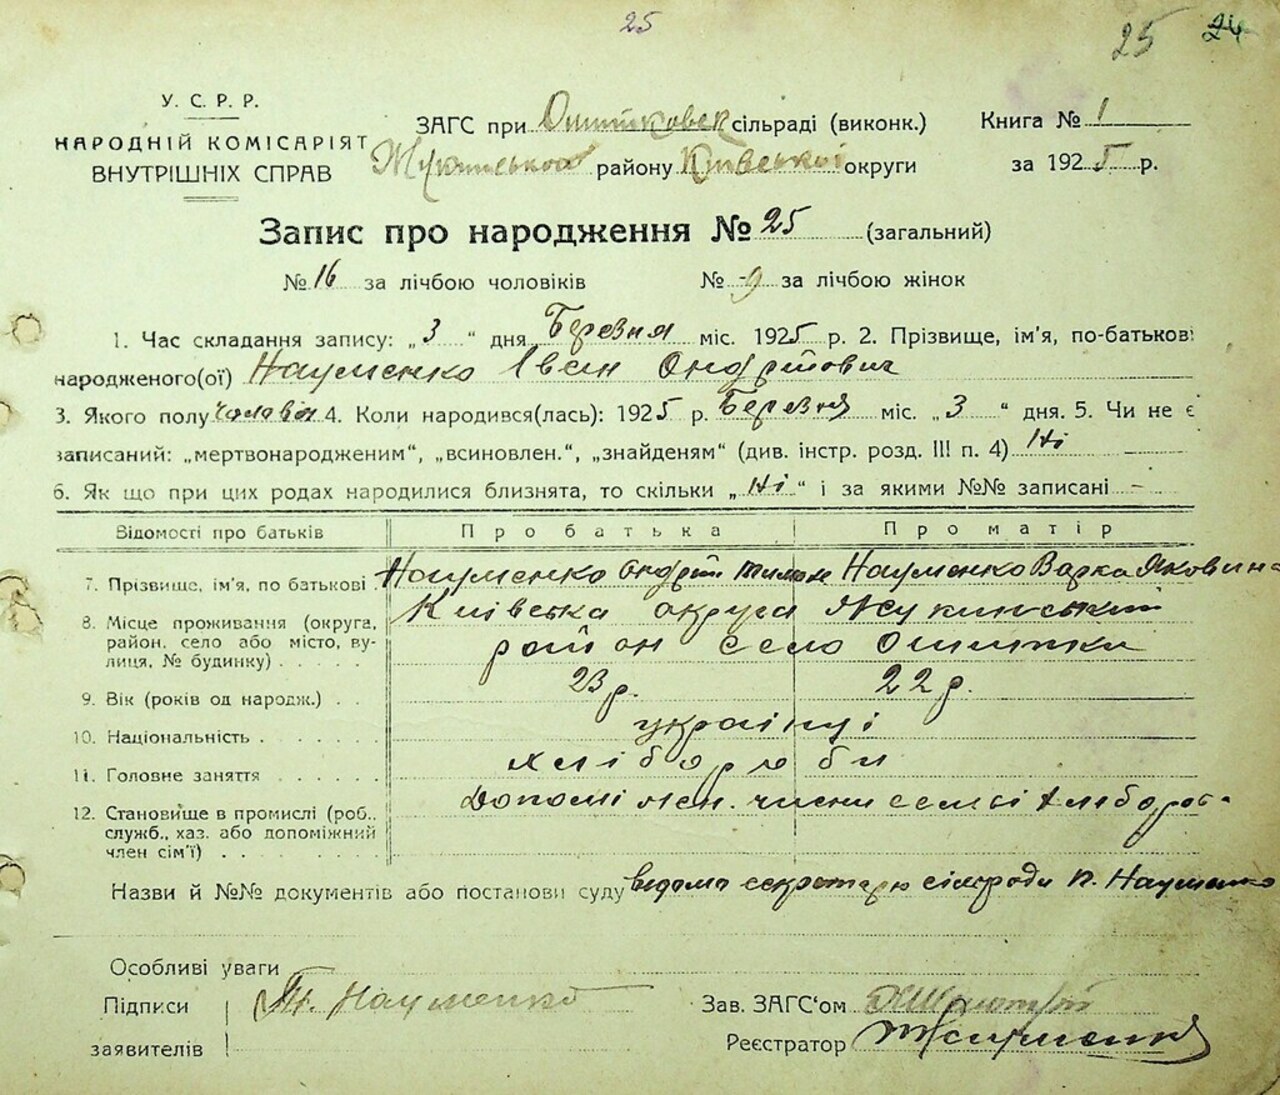 25
25 24
У. С. Р. Р.
НАРОДНІЙ КОМІСАРІЯТ
ВНУТРІШНІХ СПРАВ
ЗАГС при Ошитковск сільраді (виконк.)
Жукинськой району Київської округи
Книга № 1
за 1925 р.
Запис про народження № 25 (загальний)
№ 16 за лічбою чоловіків № 9 за лічбою жінок
1. Час складання запису: „ 3 “ дня Березня міс. 1925 р. 2. Прізвище, ім'я, по-батькові
народженого(ої) Науменко Іван Ондрійович
3. Якого полу Чоловік 4. Коли народився(лась): 1925 р. Березня міс. „ 3 “ дня. 5. Чи не є
записаний: „мертвонародженим“, „всиновлен.“, „знайденям“ (див. інстр. розд. III п. 4) Ні
6. Як що при цих родах народилися близнята, то скільки „ Ні “ і за якими №№ записані -
Відомості про батьків Про батька Про матір
7. Прізвище, ім'я, по батькові Науменко Ондрій Науменко Варка Яковина
8. Місце проживання (округа, Київська округа Жукинський
район, село або місто, ву- район село Ошитки
лиця, № будинку)
9. Вік (років од народж.) 23 р. 22 р.
10. Національність українці
11. Головне заняття хліборюби
12. Становище в промислі (роб., Допоміжн. члени семьї хлібороб-
служб., хаз. або допоміжний
член сім'ї)
Назви й №№ документів або постанови суду відома секретарю сільради П. Науменко
Особливі уваги
Підписи Науменко
заявителів
Зав. ЗАГС'ом
Реєстратор Науменко